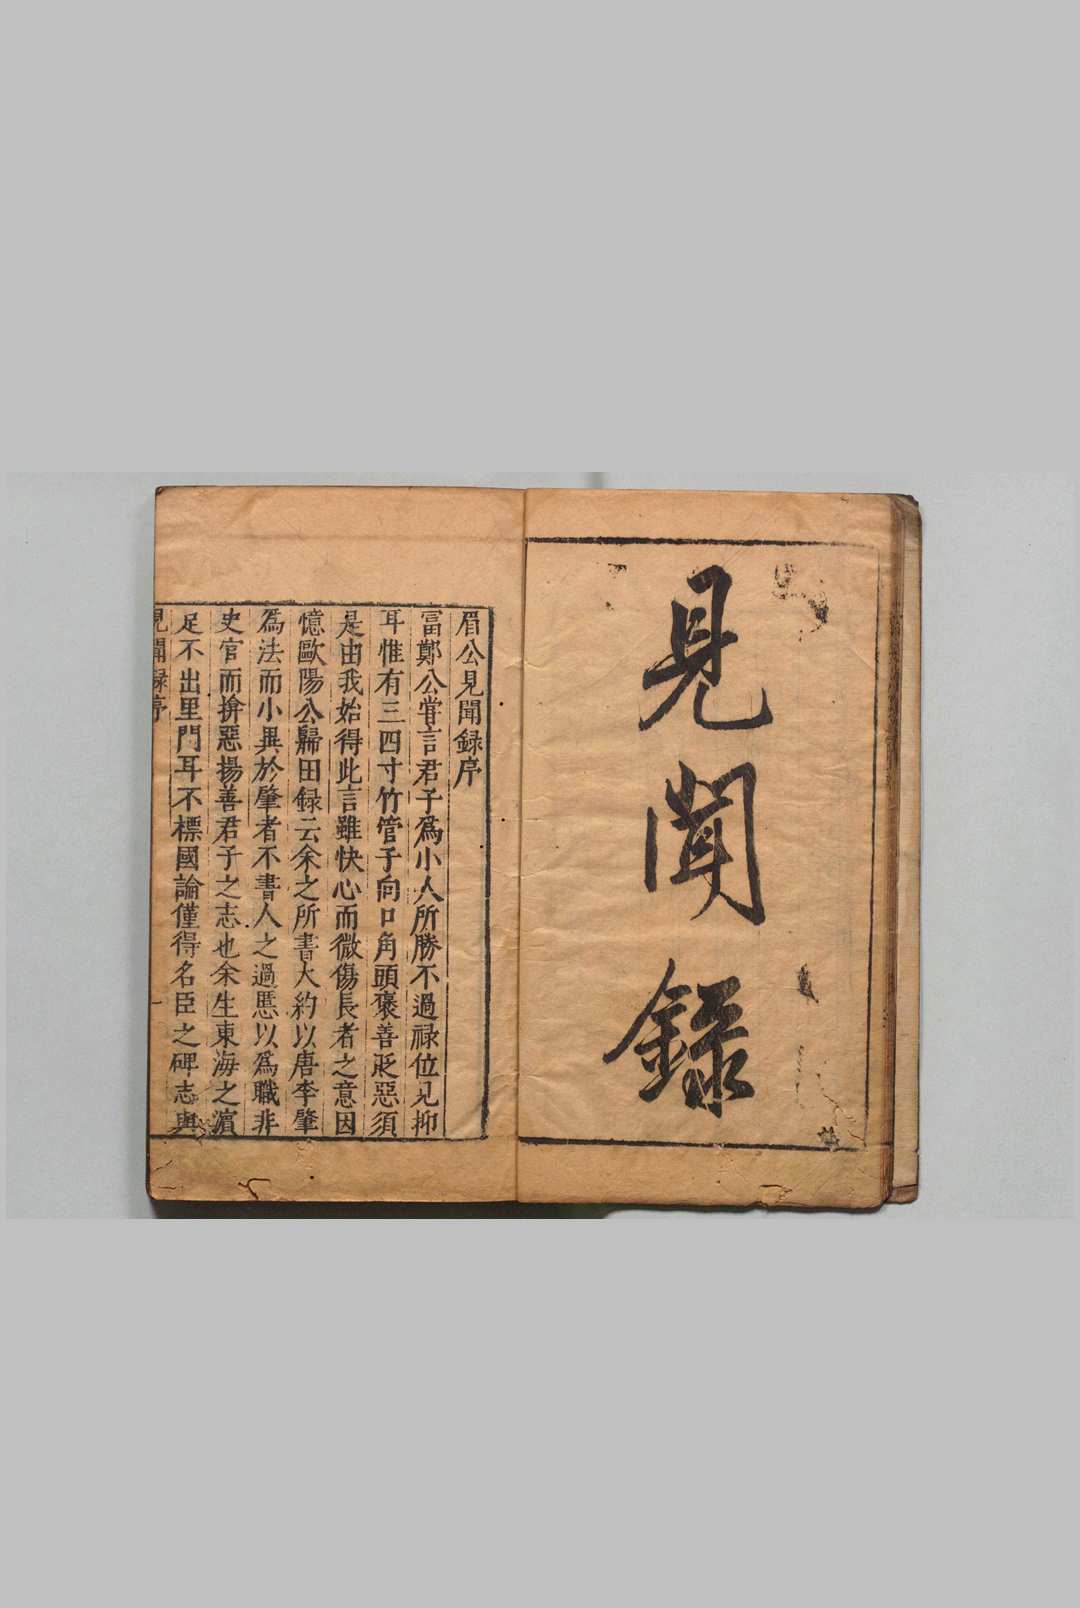 見聞録
眉公見聞録序
富鄭公嘗言君子爲小人所勝不過禄位見抑
耳惟有三四寸竹管子向口角頭褒善貶惡須
是由我始得此言雖快心而微傷長者之意因
憶歐陽公歸田録云余之所書大約以唐李肇
爲法而小異於肇者不書人之過惡以爲職非
史官而揜惡揚善君子之志也余生東海之濵
足不出里門耳不標國論僅得名臣之碑志與
見聞録序